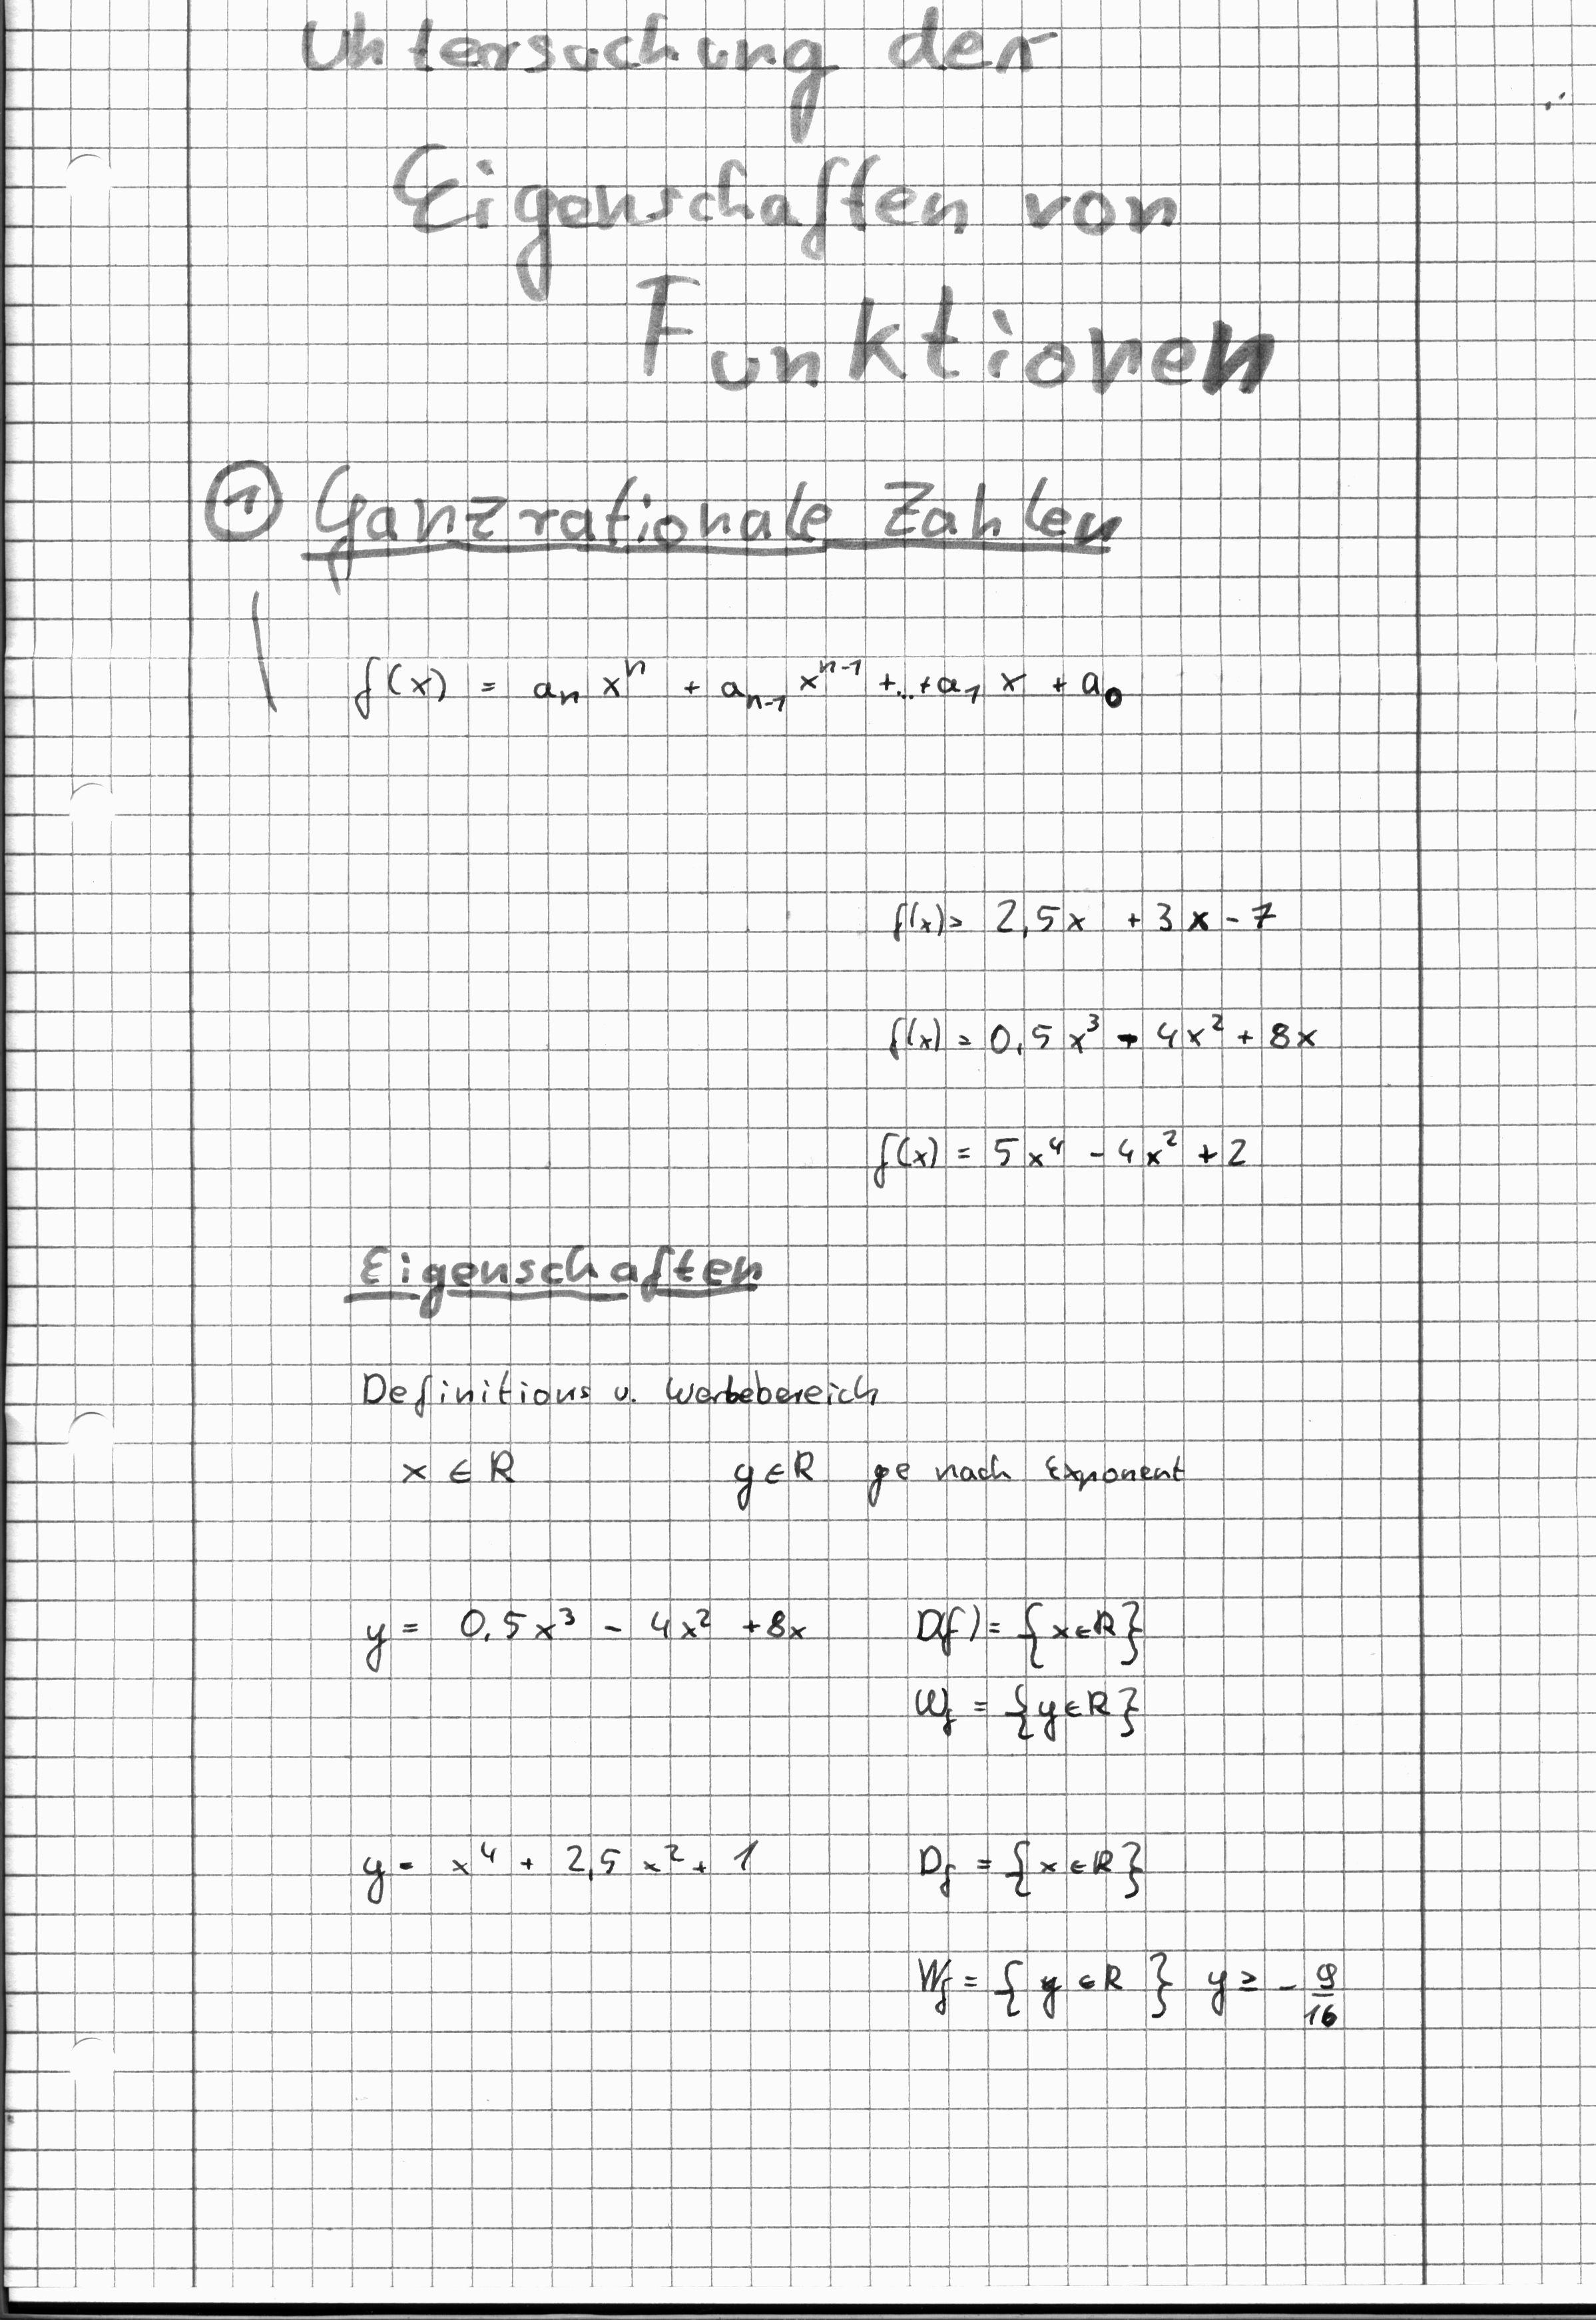 Untersuchung der
Eigenschaften von
Funktionen
① Ganzrationale Zahlen
f(x) = aₙ xⁿ + aₙ₋₁ xⁿ⁻¹ +...+ a₁ x + a₀
f(x) = 2,5x + 3x - 7
f(x) = 0,5x³ - 4x² + 8x
f(x) = 5x⁴ - 4x² + 2
Eigenschaften
Definitions u. Wertebereich
x ∈ R y ∈ R je nach Exponent
y = 0,5x³ - 4x² + 8x D(f) = {x ∈ R}
Wf = {y ∈ R}
y = x⁴ + 2,5x² + 1 Df = {x ∈ R}
Wf = {y ∈ R} y ≥ - 9/16